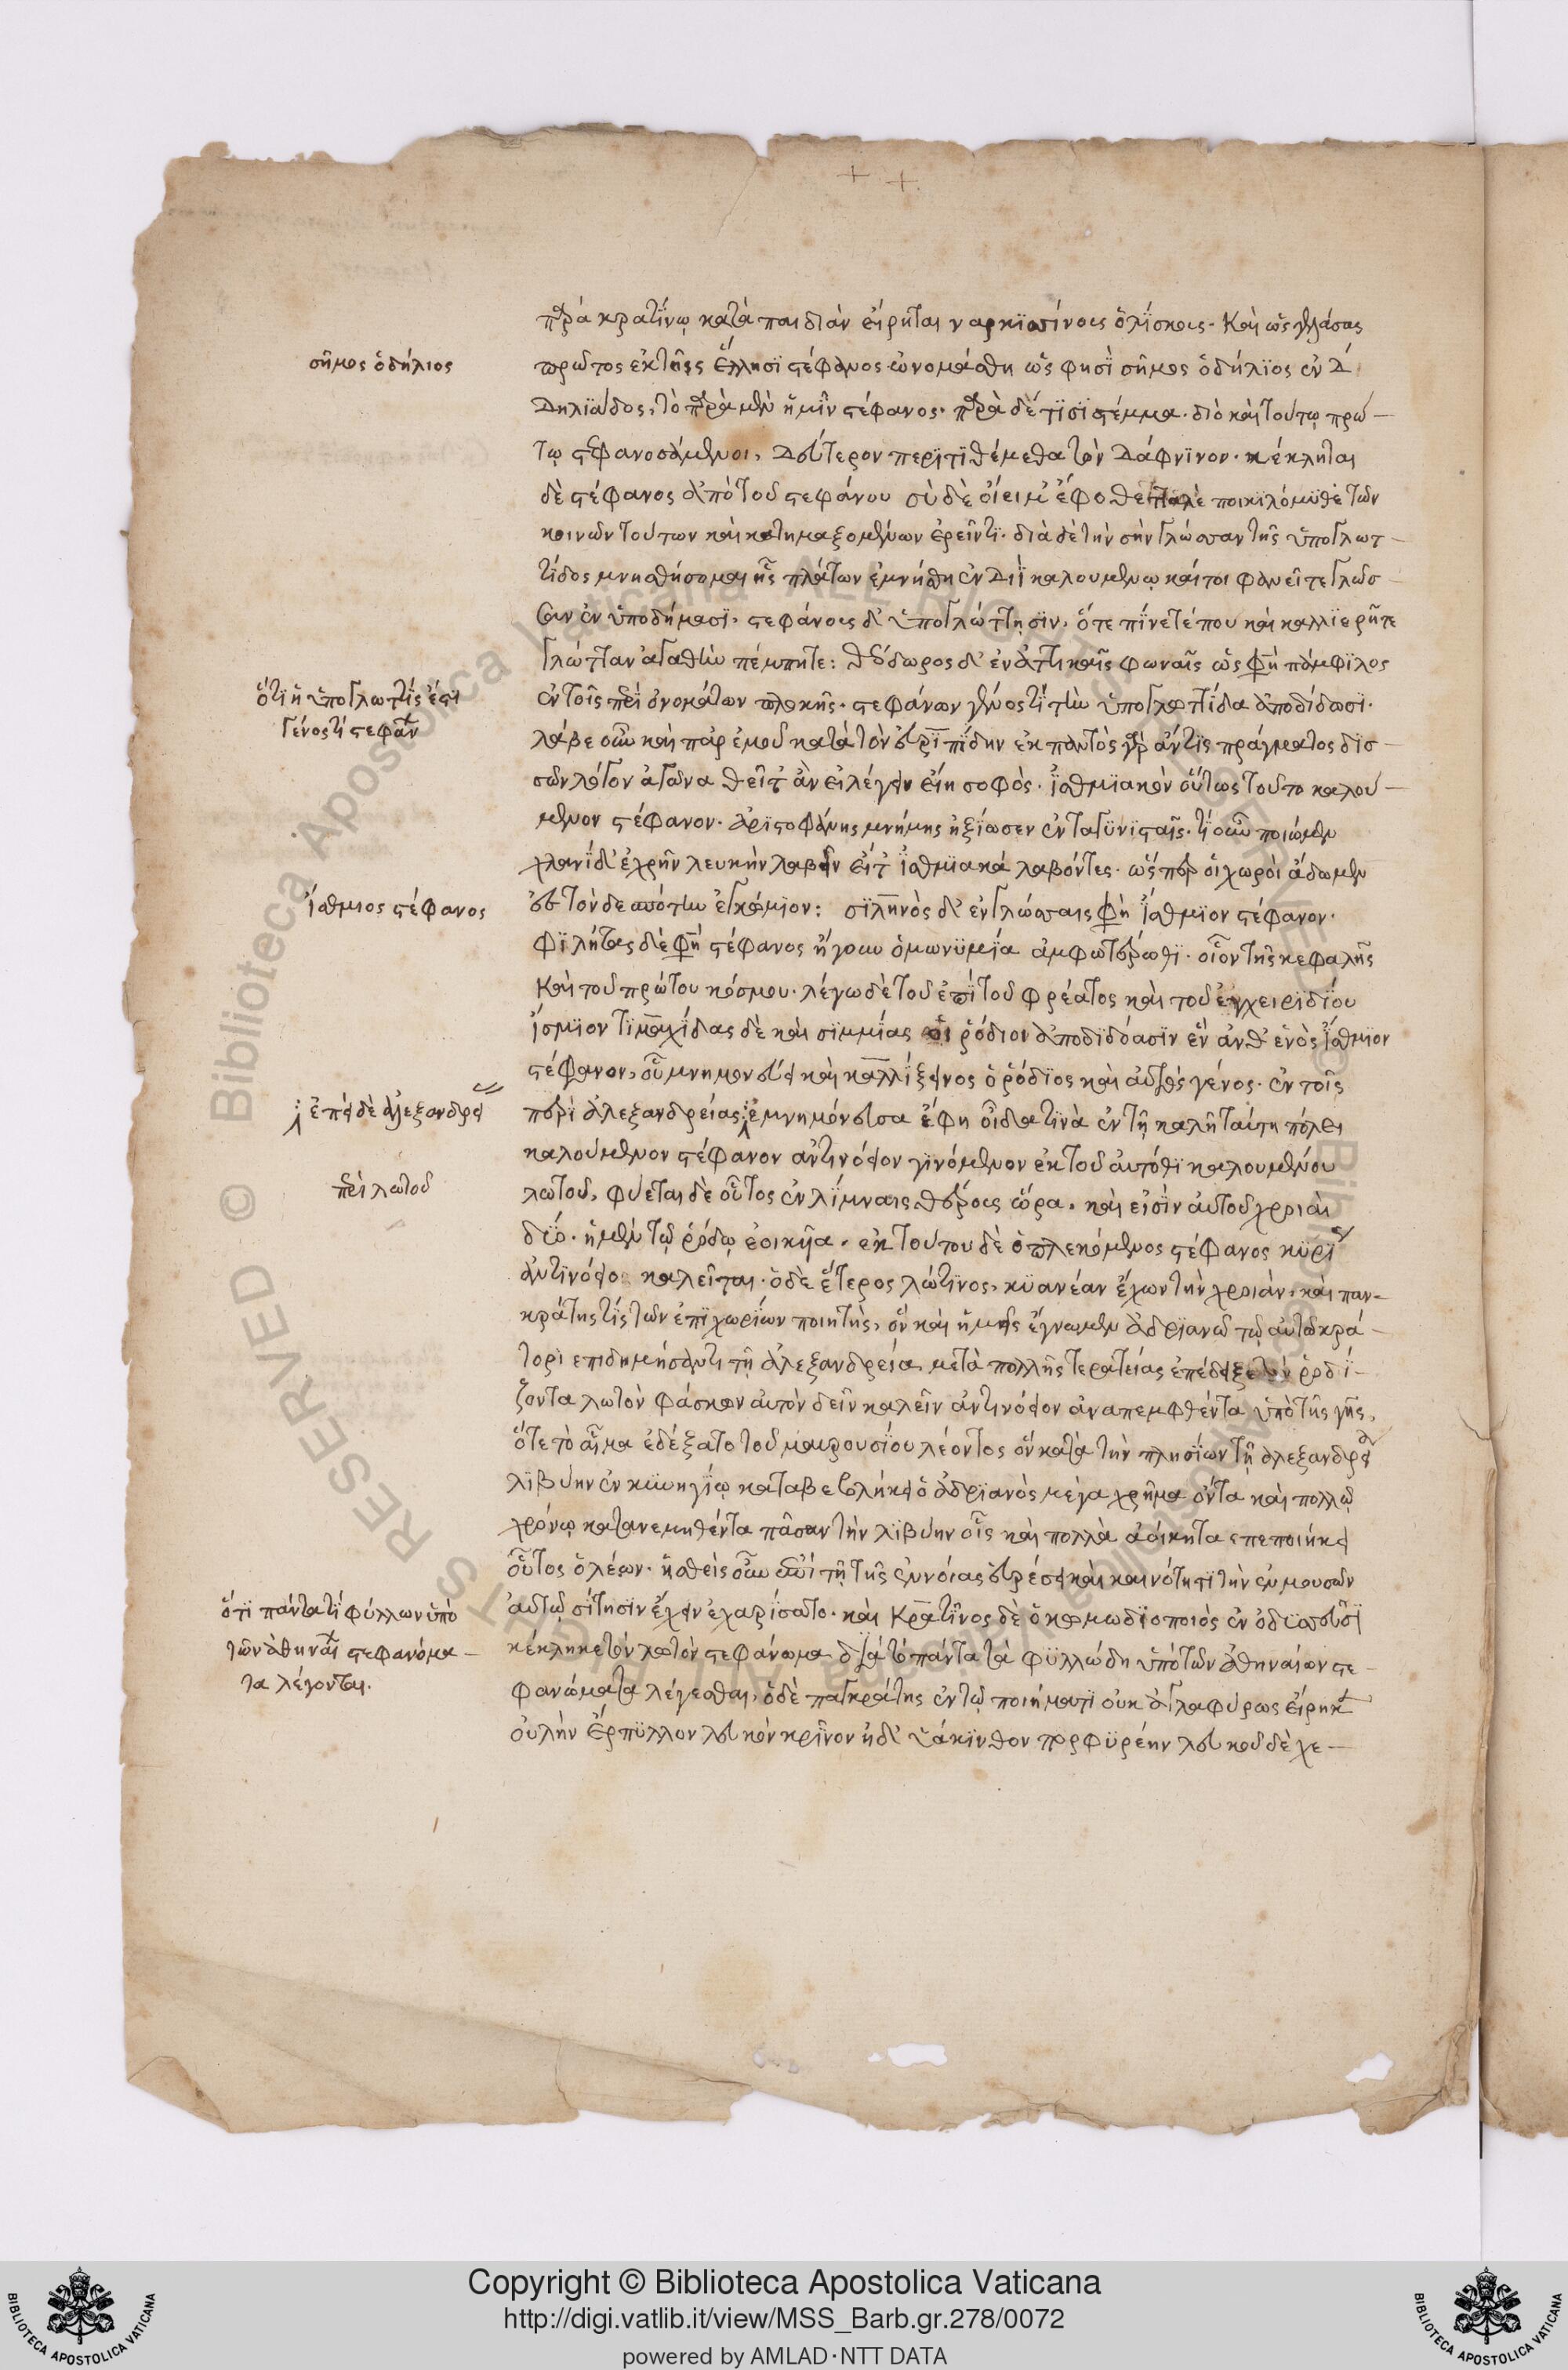 παρὰ κρατίνω κατὰ παιδιὰν εἴρηται ναρκισσίνους ὀλίσκους· καὶ ὡς
σῆμος ὁ δήλιος
πρῶτος ἐκ τῆς ἕλλησι στέφανος ὠνομάσθη ὥς φησὶ σῆμος ὁ δήλιος ἐν Δ
Δηλιάδος, τὸ παρὰ μὲν ἡμῖν στέφανος· παρὰ δέ τισι στέμμα· διὸ καὶ τούτῳ πρώ-
τῳ στεφανοσάμενοι, Δεύτερον περιτιθέμεθα τὸν Δάφνινον· κέκληται
δὲ στέφανος ἀπὸ τοῦ στεφάνου σὺ δὲ οἴει μ' ἔφο ποικιλόμυθε τῶν
κοινῶν τούτων καὶ κατημαξομένων ἐρεῖν τι· διὰ δὲ τὴν σὴν γλώσσαν τῆς ὑπογλωτ-
τίδος μνησθήσομαι ἧς πλάτων ἐμνήσθη ἐν Διῒ καλουμένῳ καίτοι φανεῖτε γλῶσ-
σαν ἐν ὑποδήμασι, στεφάνοις δ' ὑπογλώττησιν, ὅτε πίνετέ που καὶ καλλιερῆτε
γλώτταν ἀγαθὴν πέμπητε: Θεόδωρος δ' ἐν ἀττικαῖς φωναῖς ὥς φη πάμφιλος
ὅτι ἡ ὑπογλωττίς ἐστι
γένος τί στεφαν
ἐν τοῖς περὶ ὀνομάτων πλοκῆς· στεφάνων γένος τί τὴν ὑπογλοττίδα ἀποδίδωσι·
λάβε οὖν καὶ παρ ἐμοῦ κατὰ τὸν εὐριπίδην ἐκ παντὸς γὰρ ἄν τις πράγματος δισ-
σῶν λόγον ἀγῶνα θεῖτ ἂν εἰ λέγειν εἴη σοφὸς· ἰσθμιακὸν οὕτως τοῦτο καλού-
μενον στέφανον· ἀριστοφάνης μνήμης ἠξίωσεν ἐν ταγηνισταῖς· τί οὖν ποιῶμεν
χλανίδ' ἐχρῆν λευκὴν λαβεῖν εἶτ ἰσθμιακά λαβόντες· ὥσπερ οἱ χωροὶ ἄδωμεν
ἴσθμιος στέφανος
ἐς τὸν δεσπότην ἐγκόμιον: σιληνὸς δ' ἐν γλώσσαις φη ἴσθμιον στέφανον·
φιλήτας δὲ φη στέφανος ἤγουν ὁμωνυμία ἀμφωτέρωθι· οἷον τῆς κεφαλῆς
καὶ τοῦ πρώτου κόσμου· λέγω δὲ τοῦ ἐπὶ τοῦ φρέατος καὶ τοῦ ἐγχειριδίου
ἴσμιον τιμαχίδας δὲ καὶ σιμμίας οἱ ῥόδιοι ἀποδιδόασιν ἓν ἀνθ' ἑνὸς ἴσθμιον
στέφανον, οὗ μνημονεύει καὶ καλλίξεινος ὁ ῥόδιος καὶ αὐτὸς γένος· ἐν τοῖς
ἐπεὶ δὲ ἀλεξανδρεί
περὶ ἀλεξανδρείας ἐμνημόνευσα ἔφη οἶδα τινὰ ἐν τῇ καλῇ ταύτη πόλει
καλούμενον στέφανον ἀντινόειον γινόμενον ἐκ τοῦ αὐτόθι καλουμένου
περὶ λωτοῦ
λωτοῦ, φύεται δὲ οὗτος ἐν λίμναις θέρους ὥρα· καὶ εἰσὶν αὐτοῦ χροιαὶ
δύο· ἡ μὲν τῷ ῥόδῳ ἐοικῆα· ἐκ τούτου δὲ ὁ πλεκόμενος στέφανος κυρί
ἀντινόειος καλεῖται· ὁ δὲ ἕτερος λώτινος, κυανέαν ἔχων τὴν χροιὰν, καὶ παν-
κράτης τίς τῶν ἐπιχωρίων ποιητὴς, ὃν καὶ ἡμεῖς ἔγνωμεν ἀδριανῶ τῷ αὐτοκρά-
τορι επιδημήσαντι τῇ ἀλεξανδρεία μετὰ πολλῆς τερατείας ἐπέδειξε τὸν ῥοδί-
ζοντα λωτὸν φάσκων αὐτὸν δεῖν καλεῖν ἀντινόειον ἀναπεμφθέντα ὑπὸ τῆς γῆς,
ὅτε τὸ αἷμα ἐδέξατο τοῦ μαυρουσίου λέοντος ὃν κατὰ τὴν πλησίων τῇ ἀλεξανδρεία
λιβύην ἐν κυνηγίῳ καταβεβλήκει ὁ ἀδριανὸς μέγα χρῆμα ὄντα καὶ πολλῷ
χρόνῳ κατανεμηθέντα πᾶσαν τὴν λιβύην οἷς καὶ πολλὰ ἀοίκητα ἐπεποιήκει
οὗτος ὁ λέων· ἡσθεὶς οὖν ἐπὶ τῇ τῆς ἐννοίας εὑρέσει καὶ καινότητι τὴν ἐν μουσῶν
ὅτι πάντα τὰ φύλλων ὑπὸ
τῶν ἀθηναί στεφανόμα-
τα λέγονται.
αὐτῷ σίτησιν ἔχειν ἐχαρίσατο· καὶ κρατῖνος δὲ ὁ κωμωδιοποιὸς ἐν ὀδυσσεῦσι
κέκληκε τὸν λωτὸν στεφάνωμα διὰ τὸ πάντα τὰ φυλλώδη ὑπὸ τῶν ἀθηναίων στε-
φανώματα λέγεσθαι, ὁ δὲ παγκράτης ἐν τῷ ποιήματι οὐκ ἀγλαφύρως εἴρηκεν
οὐλὴν ἕρπυλλον λευκὸν κρῖνον ἠδ' ὑάκινθον πορφυρέην λευκοῦ δὲ χε-
Copyright © Biblioteca Apostolica Vaticana
http://digi.vatlib.it/view/MSS_Barb.gr.278/0072
powered by AMLAD·NTT DATA
BIBLIOTECA APOSTOLICA VATICANA
BIBLIOTECA APOSTOLICA VATICANA